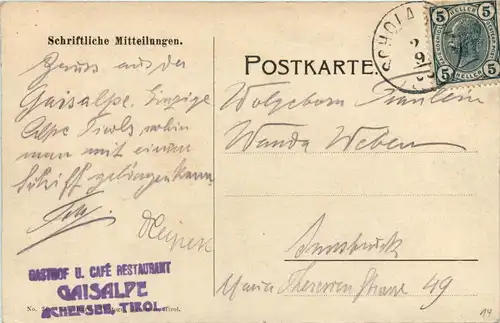 Schriftliche Mitteilungen.
Gruss aus der
Gaisalpe. Einzige
Alpe Tirols wohin
man mit einem
Schiff gelangen kann.
POSTKARTE.
SCHOLA
2
9
5 HELLER 5
5 HELLER 5
Wolgeborn Fräulein
Wanda Weber
Innsbruck
Maria Theresien Strasse 49
GASTHOF U. CAFÉ RESTAURANT
GAISALPE
ACHENSEE, TIROL
No.
Tirol.